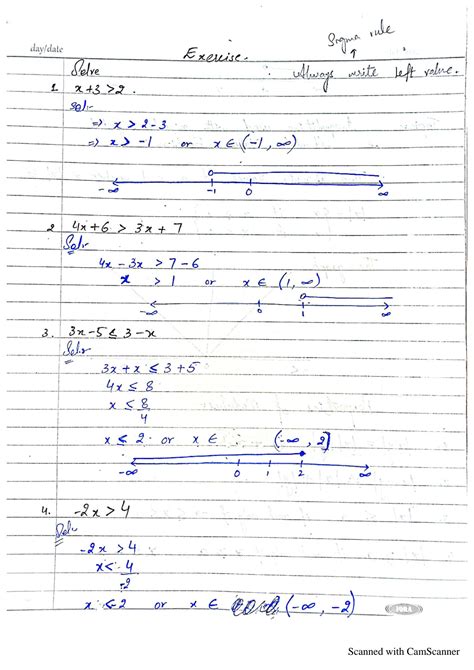 Sigma rule
day/date
Exercise.
Always write left value.
Solve
1. x+3 >2.
Sol:-
⇒ x > 2-3
⇒ x > -1 or x ∈ (-1, ∞)
-∞ -1 0 ∞
2 4x+6 > 3x + 7
Sol:-
4x - 3x > 7-6
x > 1 or x ∈ (1, ∞)
-∞ 0 1 ∞
3. 3x-5 ≤ 3-x
Sol:-
3x + x ≤ 3+5
4x ≤ 8
x ≤ 8/4
x ≤ 2 or x ∈ (-∞, 2]
-∞ 0 1 2 ∞
4. -2x > 4
Sol:-
-2x > 4
x < 4/-2
x ≤ -2 or x ∈ (-∞, -2)
Scanned with CamScanner